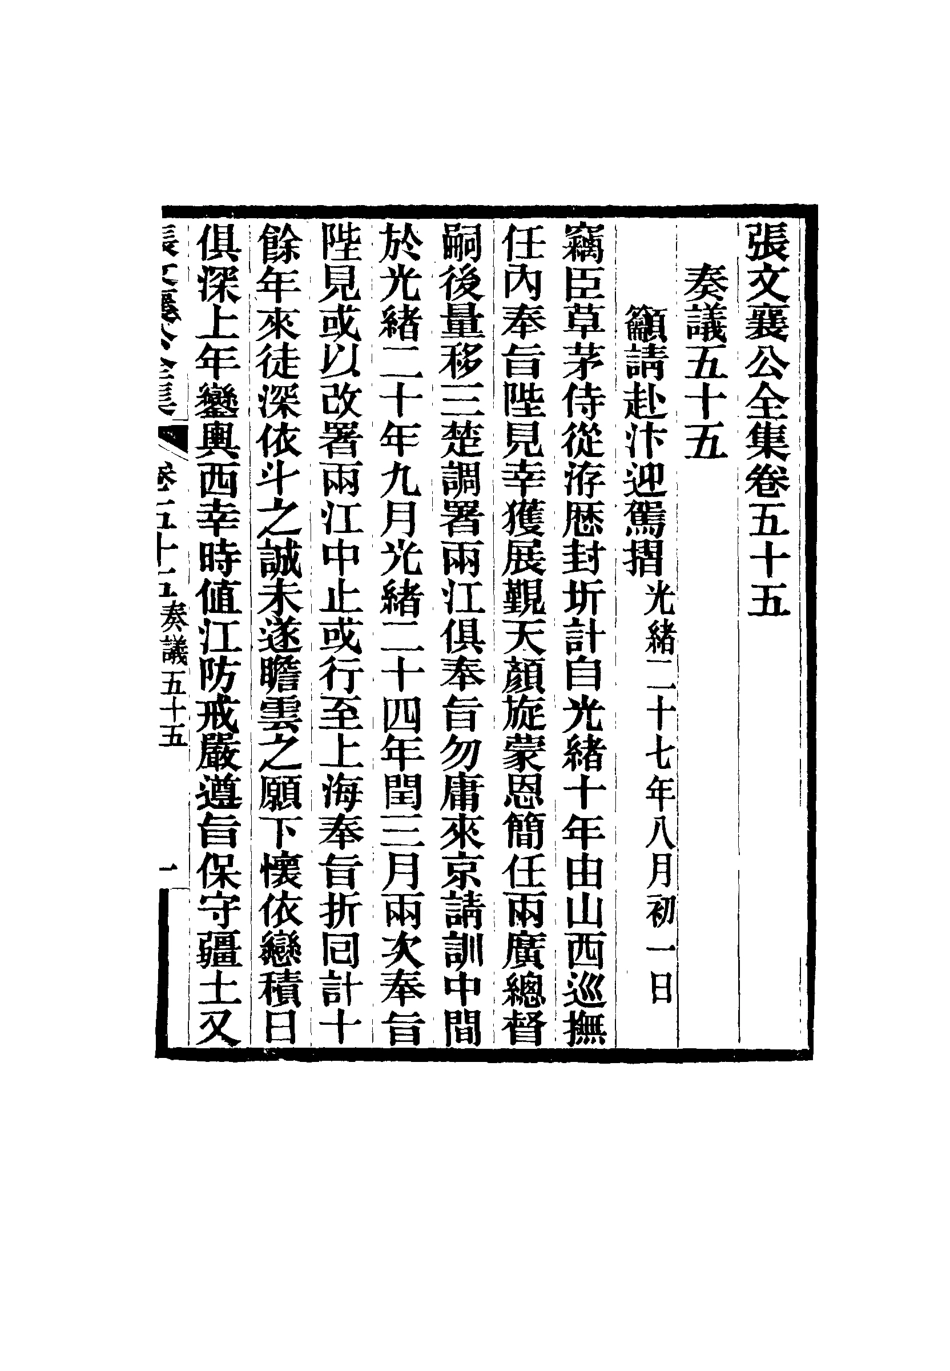 張文襄公全集卷五十五
奏議五十五
籲請赴汴迎駕摺光緒二十七年八月初一日
竊臣草茅侍從洊歷封圻計自光緒十年由山西巡撫
任內奉旨陛見幸獲展覲天顏旋蒙恩簡任兩廣總督
嗣後量移三楚調署兩江俱奉旨勿庸來京請訓中間
於光緒二十年九月光緒二十四年閏三月兩次奉旨
陛見或以改署兩江中止或行至上海奉旨折回計十
餘年來徒深依斗之誠未遂瞻雲之願下懷依戀積日
俱深上年鑾輿西幸時值江防戒嚴遵旨保守疆土又
張文襄公全集 卷五十五奏議五十五 一